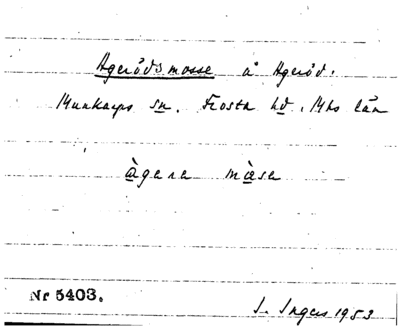 Ageröds mosse å Ageröd.
Munkarps sn. Frosta hd. Mhs län
àgara màsa
Nr 5403.
I. Ingers 1953